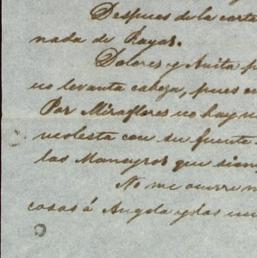 Despues de la carta
nada de Rayas.
Dolores y Anita p
no levanta cabeza, pues en
Por Miraflores no hay n
molesta con su fuente
las Maneyros que siem
No me ocurre m
cosas á Angela y las